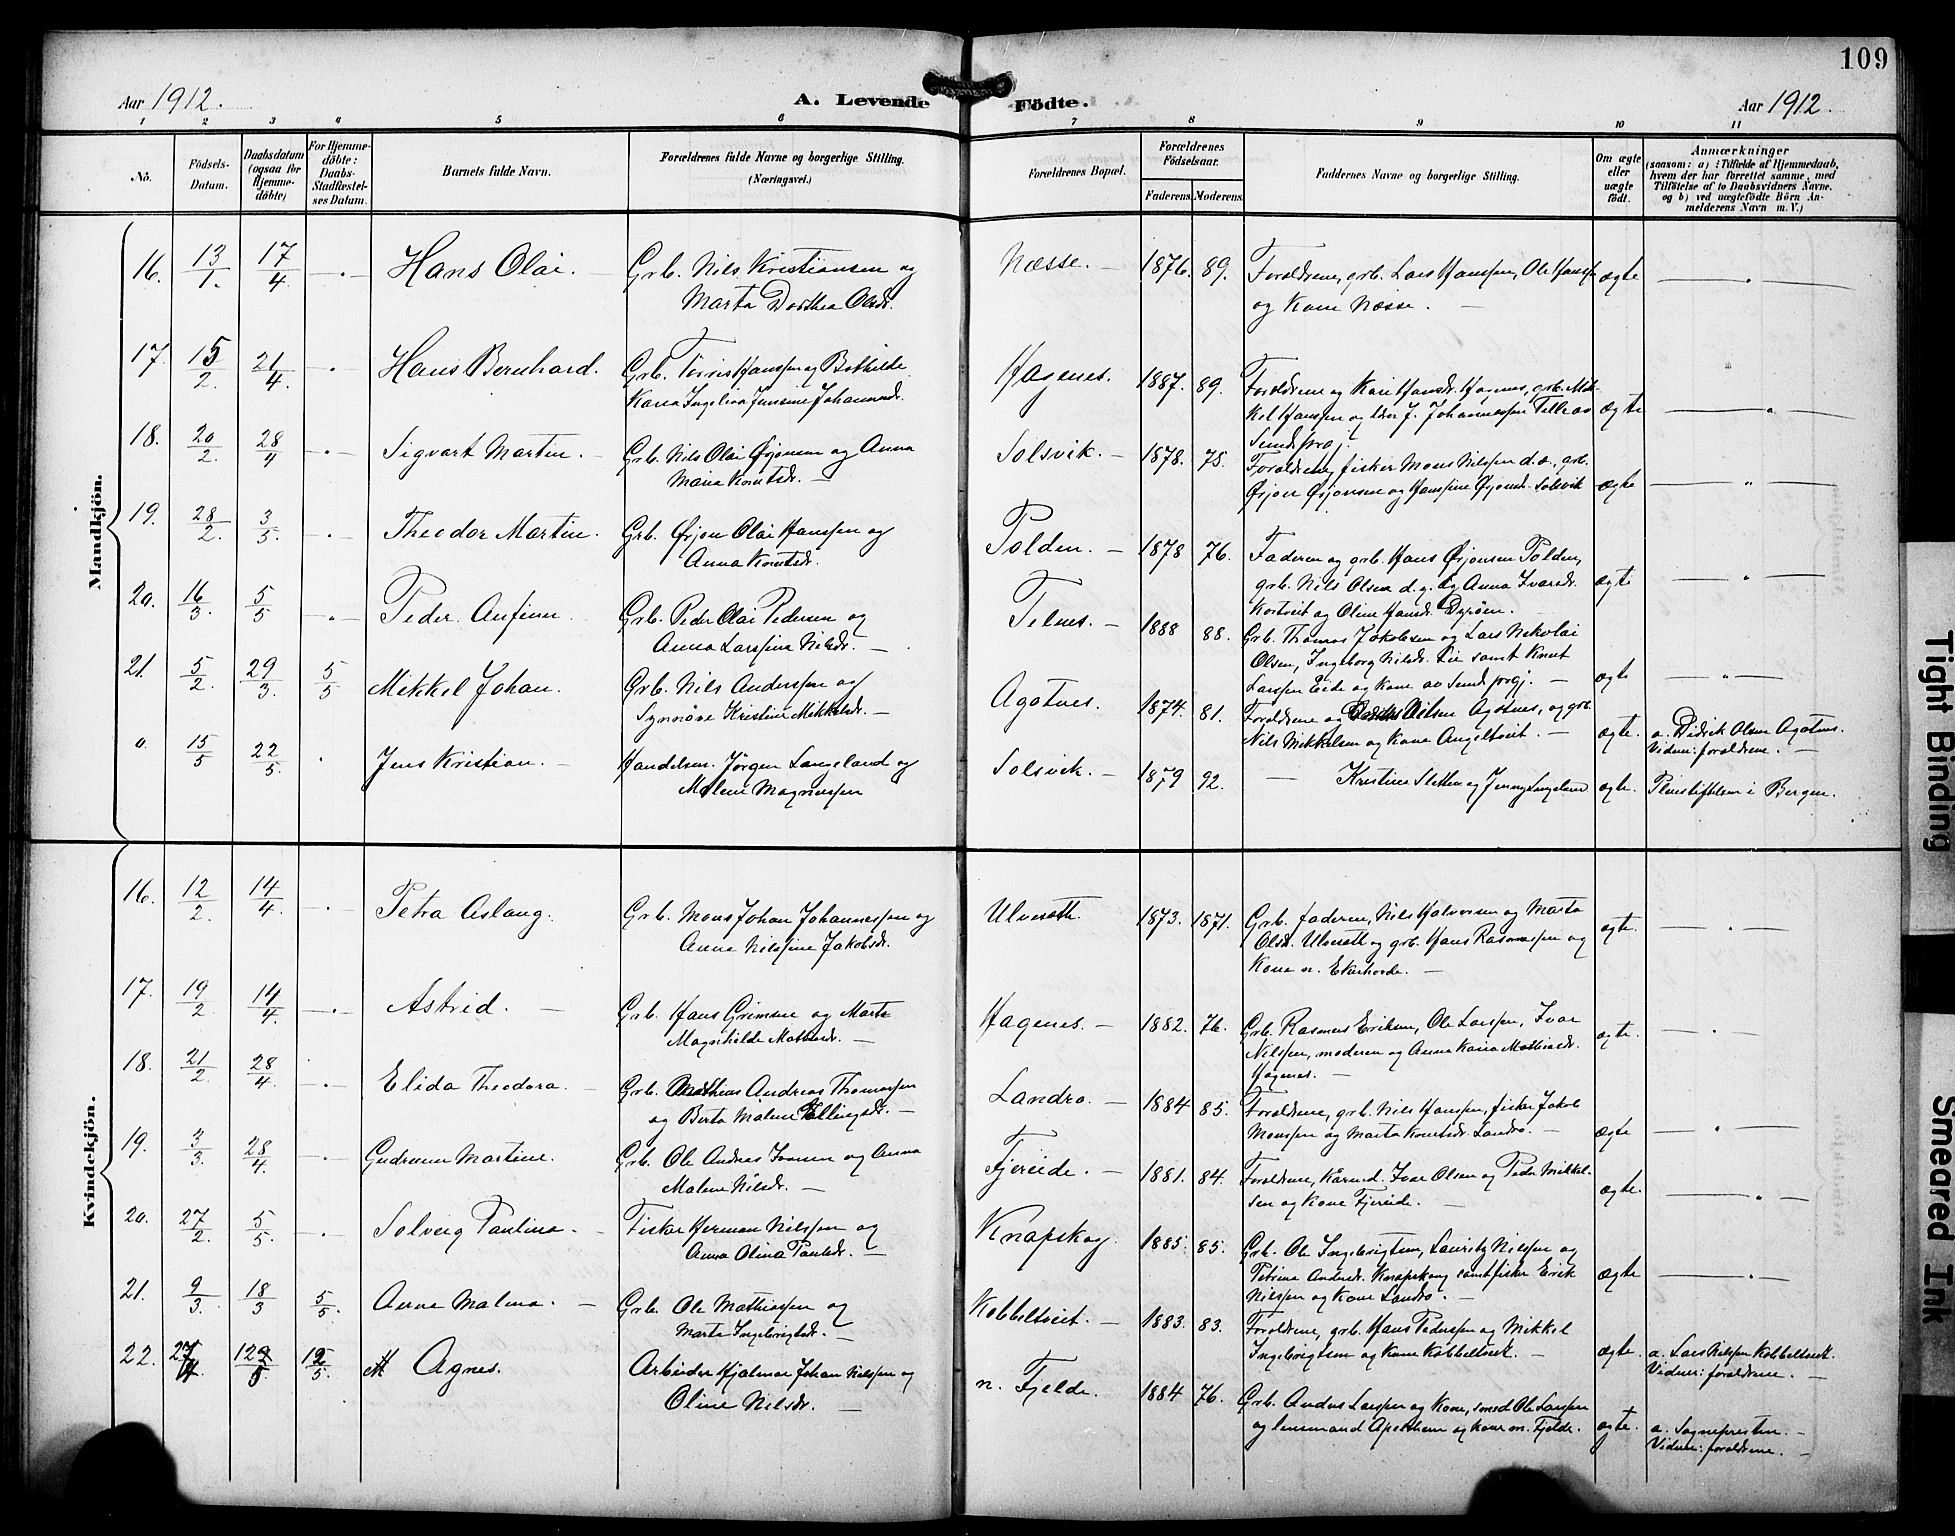 109
Aar 1912.
A. Levende Födte.
Aar 1912.
1 2 3 4 5 6 7 8 9 10 11
No.
Födsels-Datum.
Daabsdatum (ogsaa for Hjemme-döbte)
For Hjemme-döbte: Daabs-Stadfæstel-ses Datum.
Barnets fulde Navn.
Forældrenes fulde Navne og borgerlige Stilling.
(Næringsvei.)
Forældrenes Bopæl.
Forældrenes Födselsaar.
Faderens Moderens
Faddernes Navne og borgerlige Stilling.
Om ægte eller uægte födt.
Anmærkninger
(saasom: a) i Tilfælde af Hjemmedaab,
hvem der har forrettet samme, med
Tilföielse af to Daabsvidners Navne.
og b) ved uægtefödte Börn An-
melderens Navn m. V.)
Mandkjön.
16. 13/1. 17/4. Hans Olai. Grb. Nils Kristiansen og
Marta Dorthea Olsdr.
Næsse. 1876. 89. Foraldrene, grb. Lars Hanssen, Ole Hanss
og Kone Næsse. ægte
17. 15/2. 21/4. Hans Bernhard. Grb. Hanssen og Bothilde
Karia Ingeleiva Jensine Johannesdr.
Hagenes. 1887. 89. Foraldrene og Kari Hansdr. Hagenes, grb. Mik-
kel Hanssen og J. Johannessen Telle av ægte
Sunds prgj.
18. 20/2. 28/4 Sigvart Martin. Grb. Nils Olai Ørjansen og Anna
Maria Knutsdr.
Solsvik. 1878. 75. Foraldrene, fisker Mons Nilssen d.s., grb.
Ørjan Ørjansen og Hanssine Ørjansd. Solsvik ægte
19. 28/2. 3/5. Theodor Martin. Grb. Ørjan Olai Hanssen og
Anna Knutsdr.
Polden. 1878 76. Faderen og grb. Hans Ørjansen Polden,
grb. Nils Olsen d.y. og Anna Ivarsdr. ægte
Kortveit og Oline Hansdr. Dyrøen.
20. 16/3. 5/5 Peder Anfinn. Grb. Peder Olai Pedersen og
Anna Larssine Nilsdr.
Telnes. 1888 88. Grb. Thomas Jakobsen og Lars Nikolai
Olsen, Ingeborg Nilsdr. Lie samt Knut
Larssen Eide og Kone av Sund prgj. ægte
21. 5/2. 29/3. 5/5 Mikkel Johan. Grb. Nils Anderssen og
Synnøve Kristine Mikkelsdr.
Agotnes. 1874. 81. Foraldrene og Olsen Agotnes, og grb.
Nils Mikkelsen og Kone Angeltveit. ægte. a. Didrik Olsen Agotnes.
Vidner: foraldrene.
0. 15/5 22/5. Jens Kristian. Handelsm. Jørgen Langeland og
Malene Magnussen
Solsvik. 1879 92. Kristine Sletten og Jenny ægte. Pleiestiftelsen i Bergen.
Kvindekjön.
16. 12/2. 14/4. Petra Aslaug. Grb. Mons Johan Johannessen og
Anna Nilssine Jakobsdr.
Ulveseth. 1873. 1871. Grb. faderen, Nils Halvorsen og Marta
Olsdr. Ulveseth og grb. Hans Rasmussen og ægte.
Kone n. Ekerhovde.
17. 19/2. 14/4. Astrid. Grb. Hans Grimsen og Marta
Magnhilde Mathiasdr.
Hagenes. 1882. 76. Grb. Rasmus Eriksen, Ole Larssen, Ivar
Nilssen, moderen og Anna Karia Mathiasdr. ægte.
Hagenes.
18. 21/2 28/4 Elida Theodora. Grb. Mathias Andreas Thomassen
og Berta Malene Ellingsdr.
Landro. 1884 85. Foraldrene, grb. Nils Hanssen, fisker Jakob
Monssen og Marta Knutsdr. Landro. ægte
19. 3/3. 28/4. Gudrunn Martine. Grb. Ole Andreas Ivarsen og Anna
Malene Nilsdr.
Fjereide. 1881. 84. Foraldrene, Kårmd. Ivar Olsen og Peder Mikkel-
sen og Kone Fjereide. ægte.
20. 27/2. 5/5. Solveig Paulina. Fisker Herman Nilssen og
Anna Olina Paulsdr.
Knapskog 1885. 85. Grb. Ole Ingebrigtsen, Lauritz Nilssen og
Petrina Andersdr. Knapskog samt fisker Erik ægte
Nilssen og Kone Landro.
21. 9/3. 18/3 5/5. Anna Malena. Grb. Ole Mathiassen og
Marta Ingebrigtsdr.
Kobbeltveit. 1883. 83. Foraldrene, grb. Hans Pederssen og Mikkel
Ingebrigtsen og Kone Kobbeltveit. ægte. a. Lars Nilssen Kobbeltveit.
Vidner: foraldrene.
22. Agnes. Arbeider Hjalmar Johan Nilssen og
Oline Nilsdr.
n. Fjelde. 1884 76. Grb. Anders Larssen og Kone, smed Ole Larssen
og lensmand Apelthun og Kone n. Fjelde. ægte. a. Sognepresten.
Vidner: foraldrene.
Tight Binding
Smeared Ink